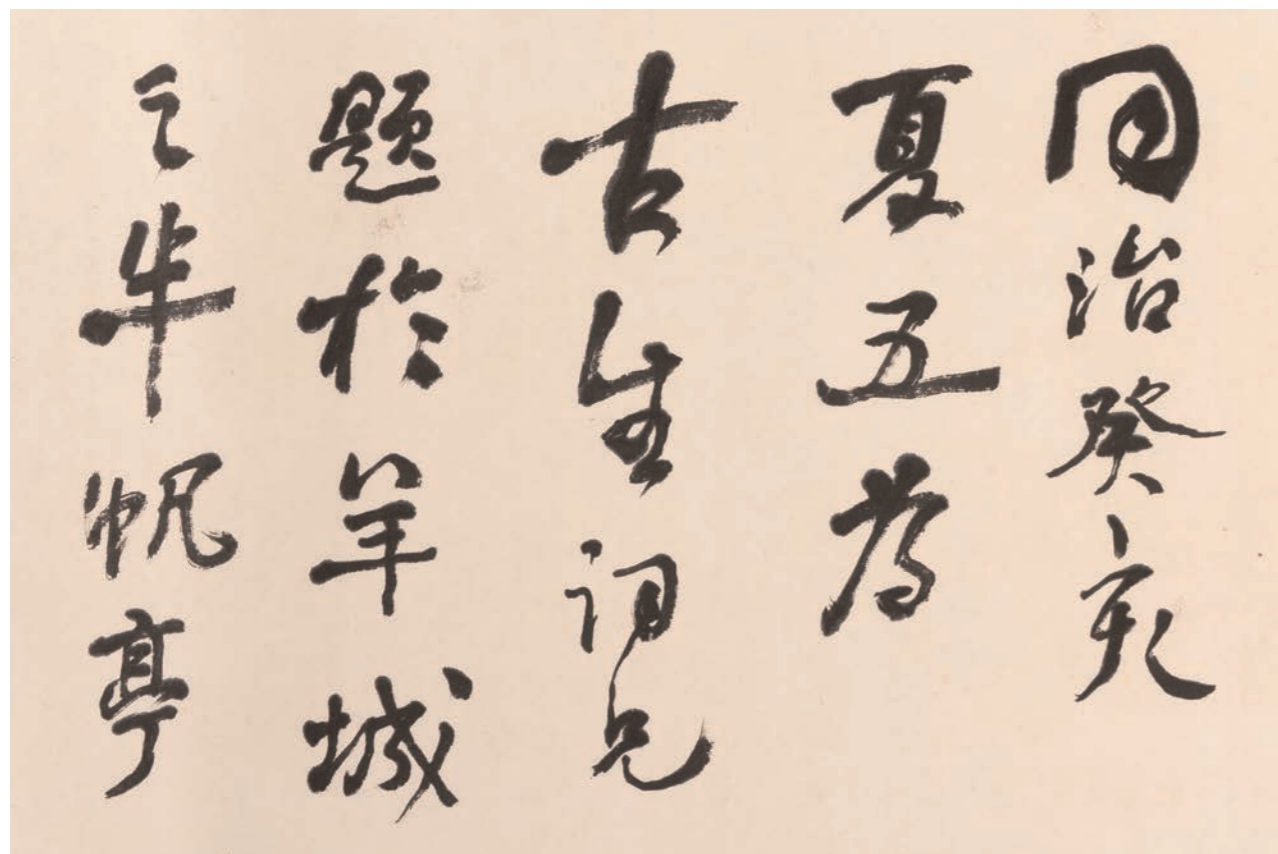 同治癸亥
夏五為
古生詞兄
題於羊城
之半帆亭